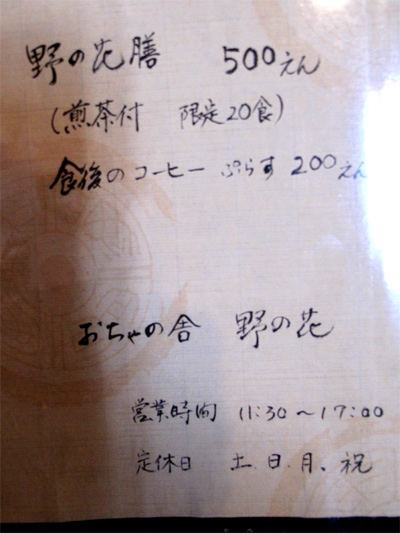 野の花膳 500えん
(煎茶付 限定20食)
食後のコーヒー ぷらす 200えん
おちゃの舎 野の花
営業時間 11:30~17:00
定休日 土.日.月、祝